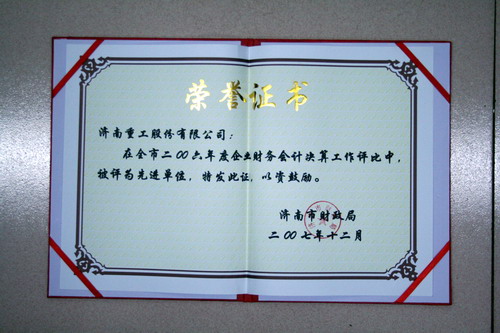 荣誉证书
济南重工股份有限公司：
在全市二〇〇六年度企业财务会计决算工作评比中，
被评为先进单位，特发此证，以资鼓励。
济南市财政局
二〇〇七年十二月